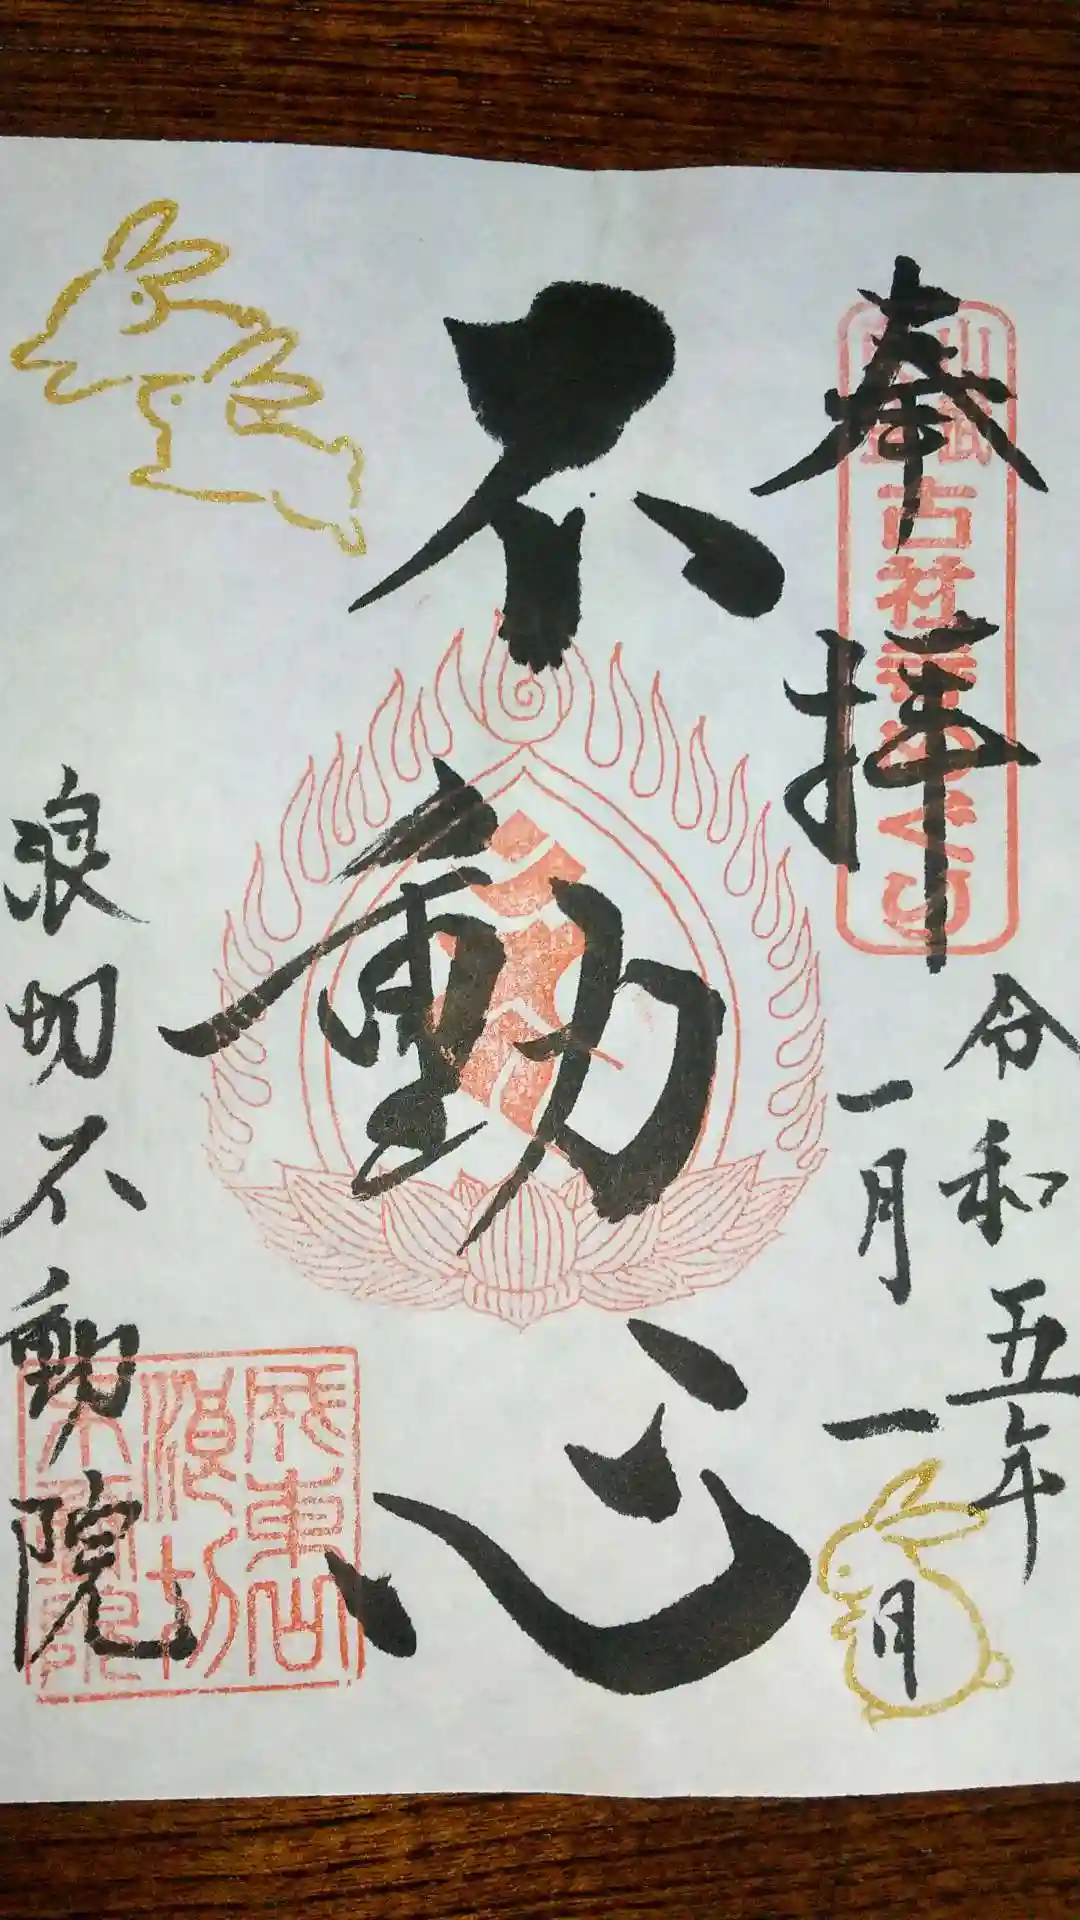 奉拝
古社寺めぐり
令和五年
一月一日
不動心
浪切不動院
成東山
浪切
不動院